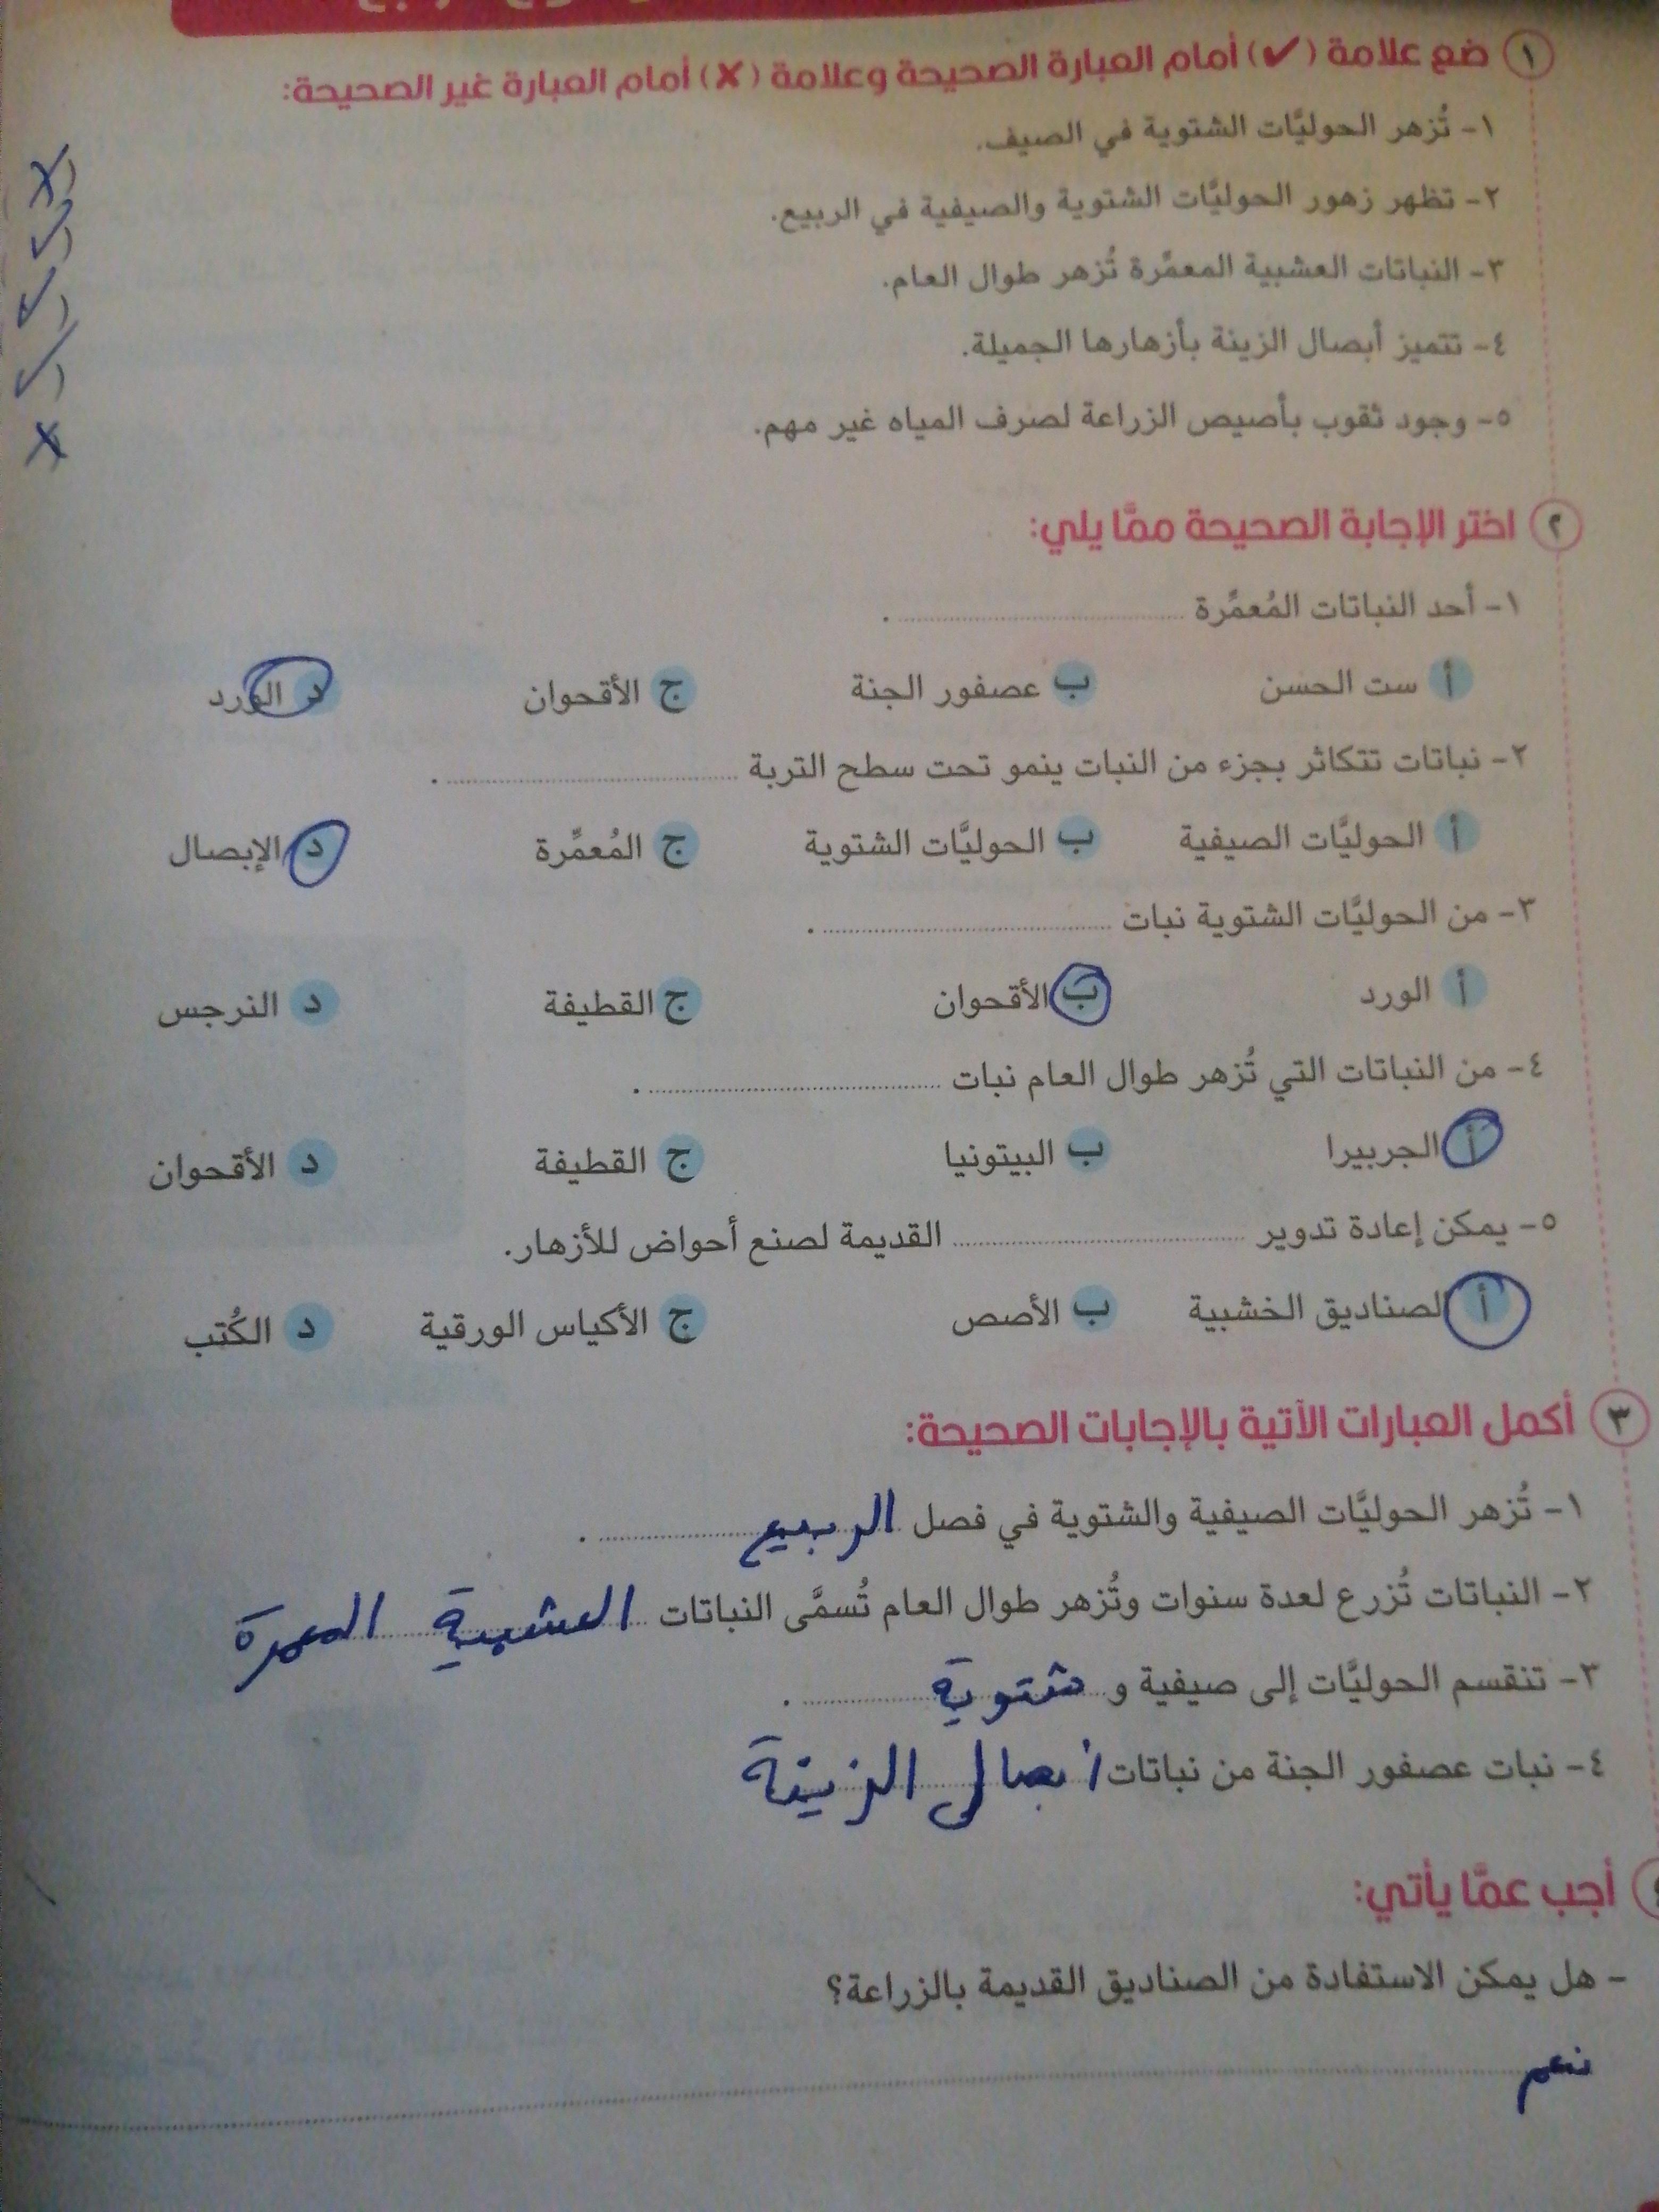 ١ ضع علامة (✔) أمام العبارة الصحيحة وعلامة (✘) أمام العبارة غير الصحيحة:
١- تُزهر الحوليَّات الشتوية في الصيف. (✗)
٢- تظهر زهور الحوليَّات الشتوية والصيفية في الربيع. (✓)
٣- النباتات العشبية المعمِّرة تُزهر طوال العام. (✓)
٤- تتميز أبصال الزينة بأزهارها الجميلة. (✓)
٥- وجود ثقوب بأصيص الزراعة لصرف المياه غير مهم. ✗
٢ اختر الإجابة الصحيحة ممَّا يلي:
١- أحد النباتات المُعمِّرة .................... .
أ ست الحسن ب عصفور الجنة ج الأقحوان د الورد
٢- نباتات تتكاثر بجزء من النبات ينمو تحت سطح التربة .................... .
أ الحوليَّات الصيفية ب الحوليَّات الشتوية ج المُعمِّرة د الإبصال
٣- من الحوليَّات الشتوية نبات .................... .
أ الورد ب الأقحوان ج القطيفة د النرجس
٤- من النباتات التي تُزهر طوال العام نبات .................... .
أ الجربيرا ب البيتونيا ج القطيفة د الأقحوان
٥- يمكن إعادة تدوير .................... القديمة لصنع أحواض للأزهار.
أ الصناديق الخشبية ب الأصص ج الأكياس الورقية د الكُتب
٣ أكمل العبارات الآتية بالإجابات الصحيحة:
١- تُزهر الحوليَّات الصيفية والشتوية في فصل الربيع .
٢- النباتات تُزرع لعدة سنوات وتُزهر طوال العام تُسمَّى النباتات العشبية المعمرة
٣- تنقسم الحوليَّات إلى صيفية و شتوية .
٤- نبات عصفور الجنة من نباتات أبصال الزينة
٤ أجب عمَّا يأتي:
- هل يمكن الاستفادة من الصناديق القديمة بالزراعة؟
نعم